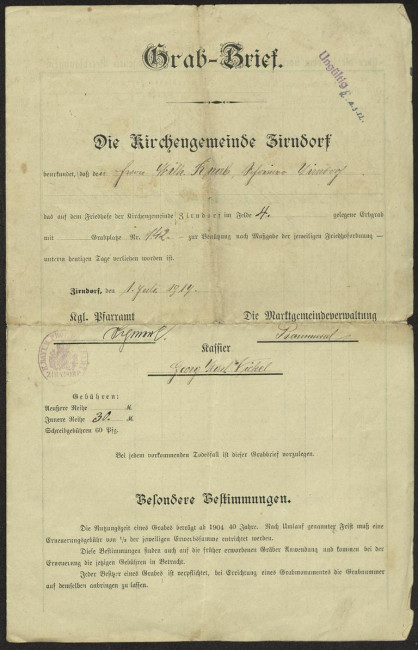 Grab-Brief.
Ungültig
Die Kirchengemeinde Zirndorf
beurkundet, daß dem Herrn Wilh.
das auf dem Friedhofe der Kirchengemeinde Zirndorf im Felde 4. gelegene Erbgrab
mit Grabplatz Nr. 142. zur Benützung nach Maßgabe der jeweiligen Friedhofordnung —
unterm heutigen Tage verliehen worden ist.
Zirndorf, den 1. 1919.
Kgl. Pfarramt Die Marktgemeindeverwaltung
Kassier
Georg
Gebühren:
Aeußere Reihe M.
Innere Reihe 30. M.
Schreibgebühren 60 Pfg.
Bei jedem vorkommenden Todesfall ist dieser Grabbrief vorzuzeigen.
Besondere Bestimmungen.
Die Nutzungszeit eines Grabes beträgt ab 1904 40 Jahre. Nach Umlauf genannter Frist muß eine
Erneuerungsgebühr von der jeweiligen Erwerbssumme entrichtet werden.
Diese Bestimmungen finden auch auf die früher erworbenen Gräber Anwendung und kommen bei der
Erneuerung die jetzigen Gebühren in Betracht.
Jeder Besitzer eines Grabes ist verpflichtet, bei Errichtung eines Grabmonumentes die Grabnummer
auf demselben anbringen zu lassen.